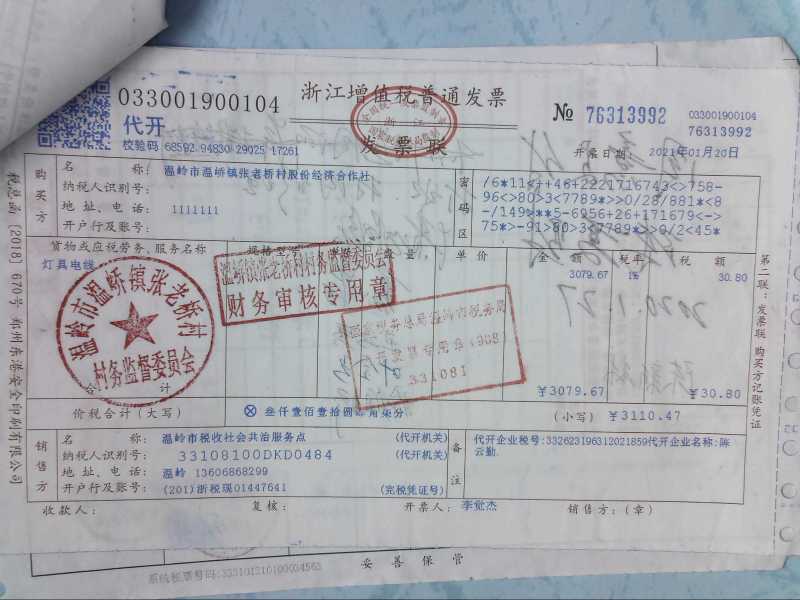 033001900104
浙江增值税普通发票
发票联
№ 76313992
033001900104
76313992
代开
校验码 68592 94830 29025 17261
开票日期: 2021年01月20日
税总函〔2018〕670号 郑州东港安全印刷有限公司
购买方
名 称: 温岭市温峤镇张老桥村股份经济合作社
纳税人识别号:
地 址、电 话: 1111111
开户行及账号:
密码区
/6*11<++46+2221716743<>758-
96<>80+3<7789*>>0/28/881*<8
-/149>**5-6956+26+171679<->
75*>-91>80>3<7789*>>0/2<45*
货物或应税劳务、服务名称 规格型 量 单 价 金 额 税率 税 额
灯具电线 3079.67 1% 30.80
温峤镇张老桥村村务监督委员会
财务审核专用章
温岭市温峤镇张老桥村
村务监督委员会
331081
合 计 ¥3079.67 ¥30.80
价税合计(大写) ⊗ 叁仟壹佰壹拾圆肆角柒分 (小写) ¥3110.47
第二联:发票联 购买方记账凭证
销售方
名 称: 温岭市税收社会共治服务点 (代开机关)
纳税人识别号: 33108100DKD0484 (代开机关)
地 址、电 话: 温岭 13606868299
开户行及账号: (201)浙税现01447641 (完税凭证号)
备注
代开企业税号:332623196312021859代开企业名称:陈
云勤.
收款人: 复核: 开票人: 李觉杰 销售方:(章)
妥善保管
系统税票号码:333101210100034563